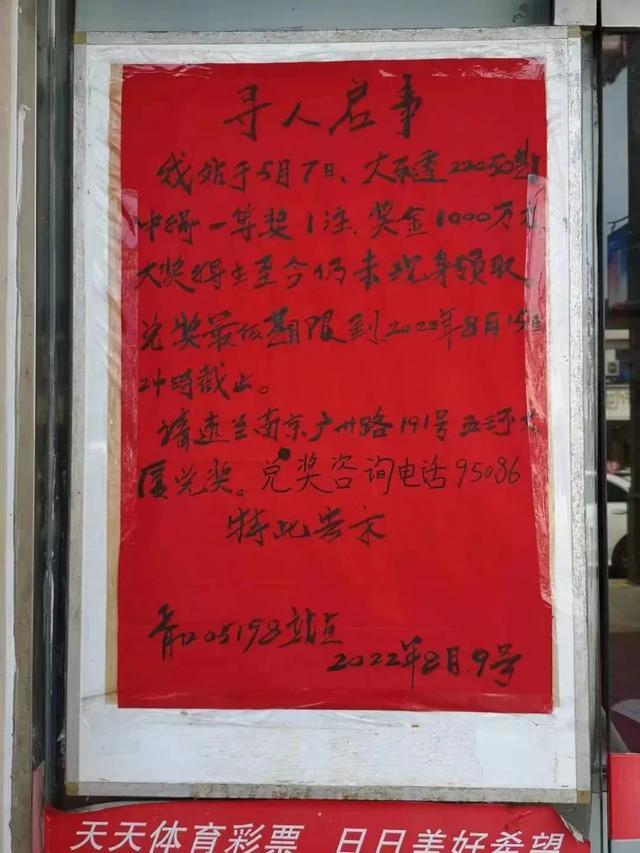 寻人启事
我站于5月7日、大乐透22050期
中得一等奖1注、奖金1000万元、
大奖得主至今仍未现身领取。
兑奖最后期限到2022年8月15日
24时截止。
请速至南京广州路191号五环大
厦兑奖。兑奖咨询电话95086
特此告示
05198站点
2022年8月.9号
天天体育彩票 日日美好希望